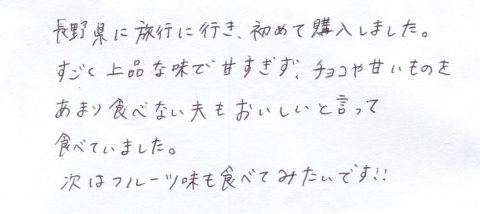 長野県に旅行に行き、初めて購入しました。
すごく上品な味で甘すぎず、チョコや甘いものを
あまり食べない夫もおいしいと言って
食べていました。
次はフルーツ味も食べてみたいです!!